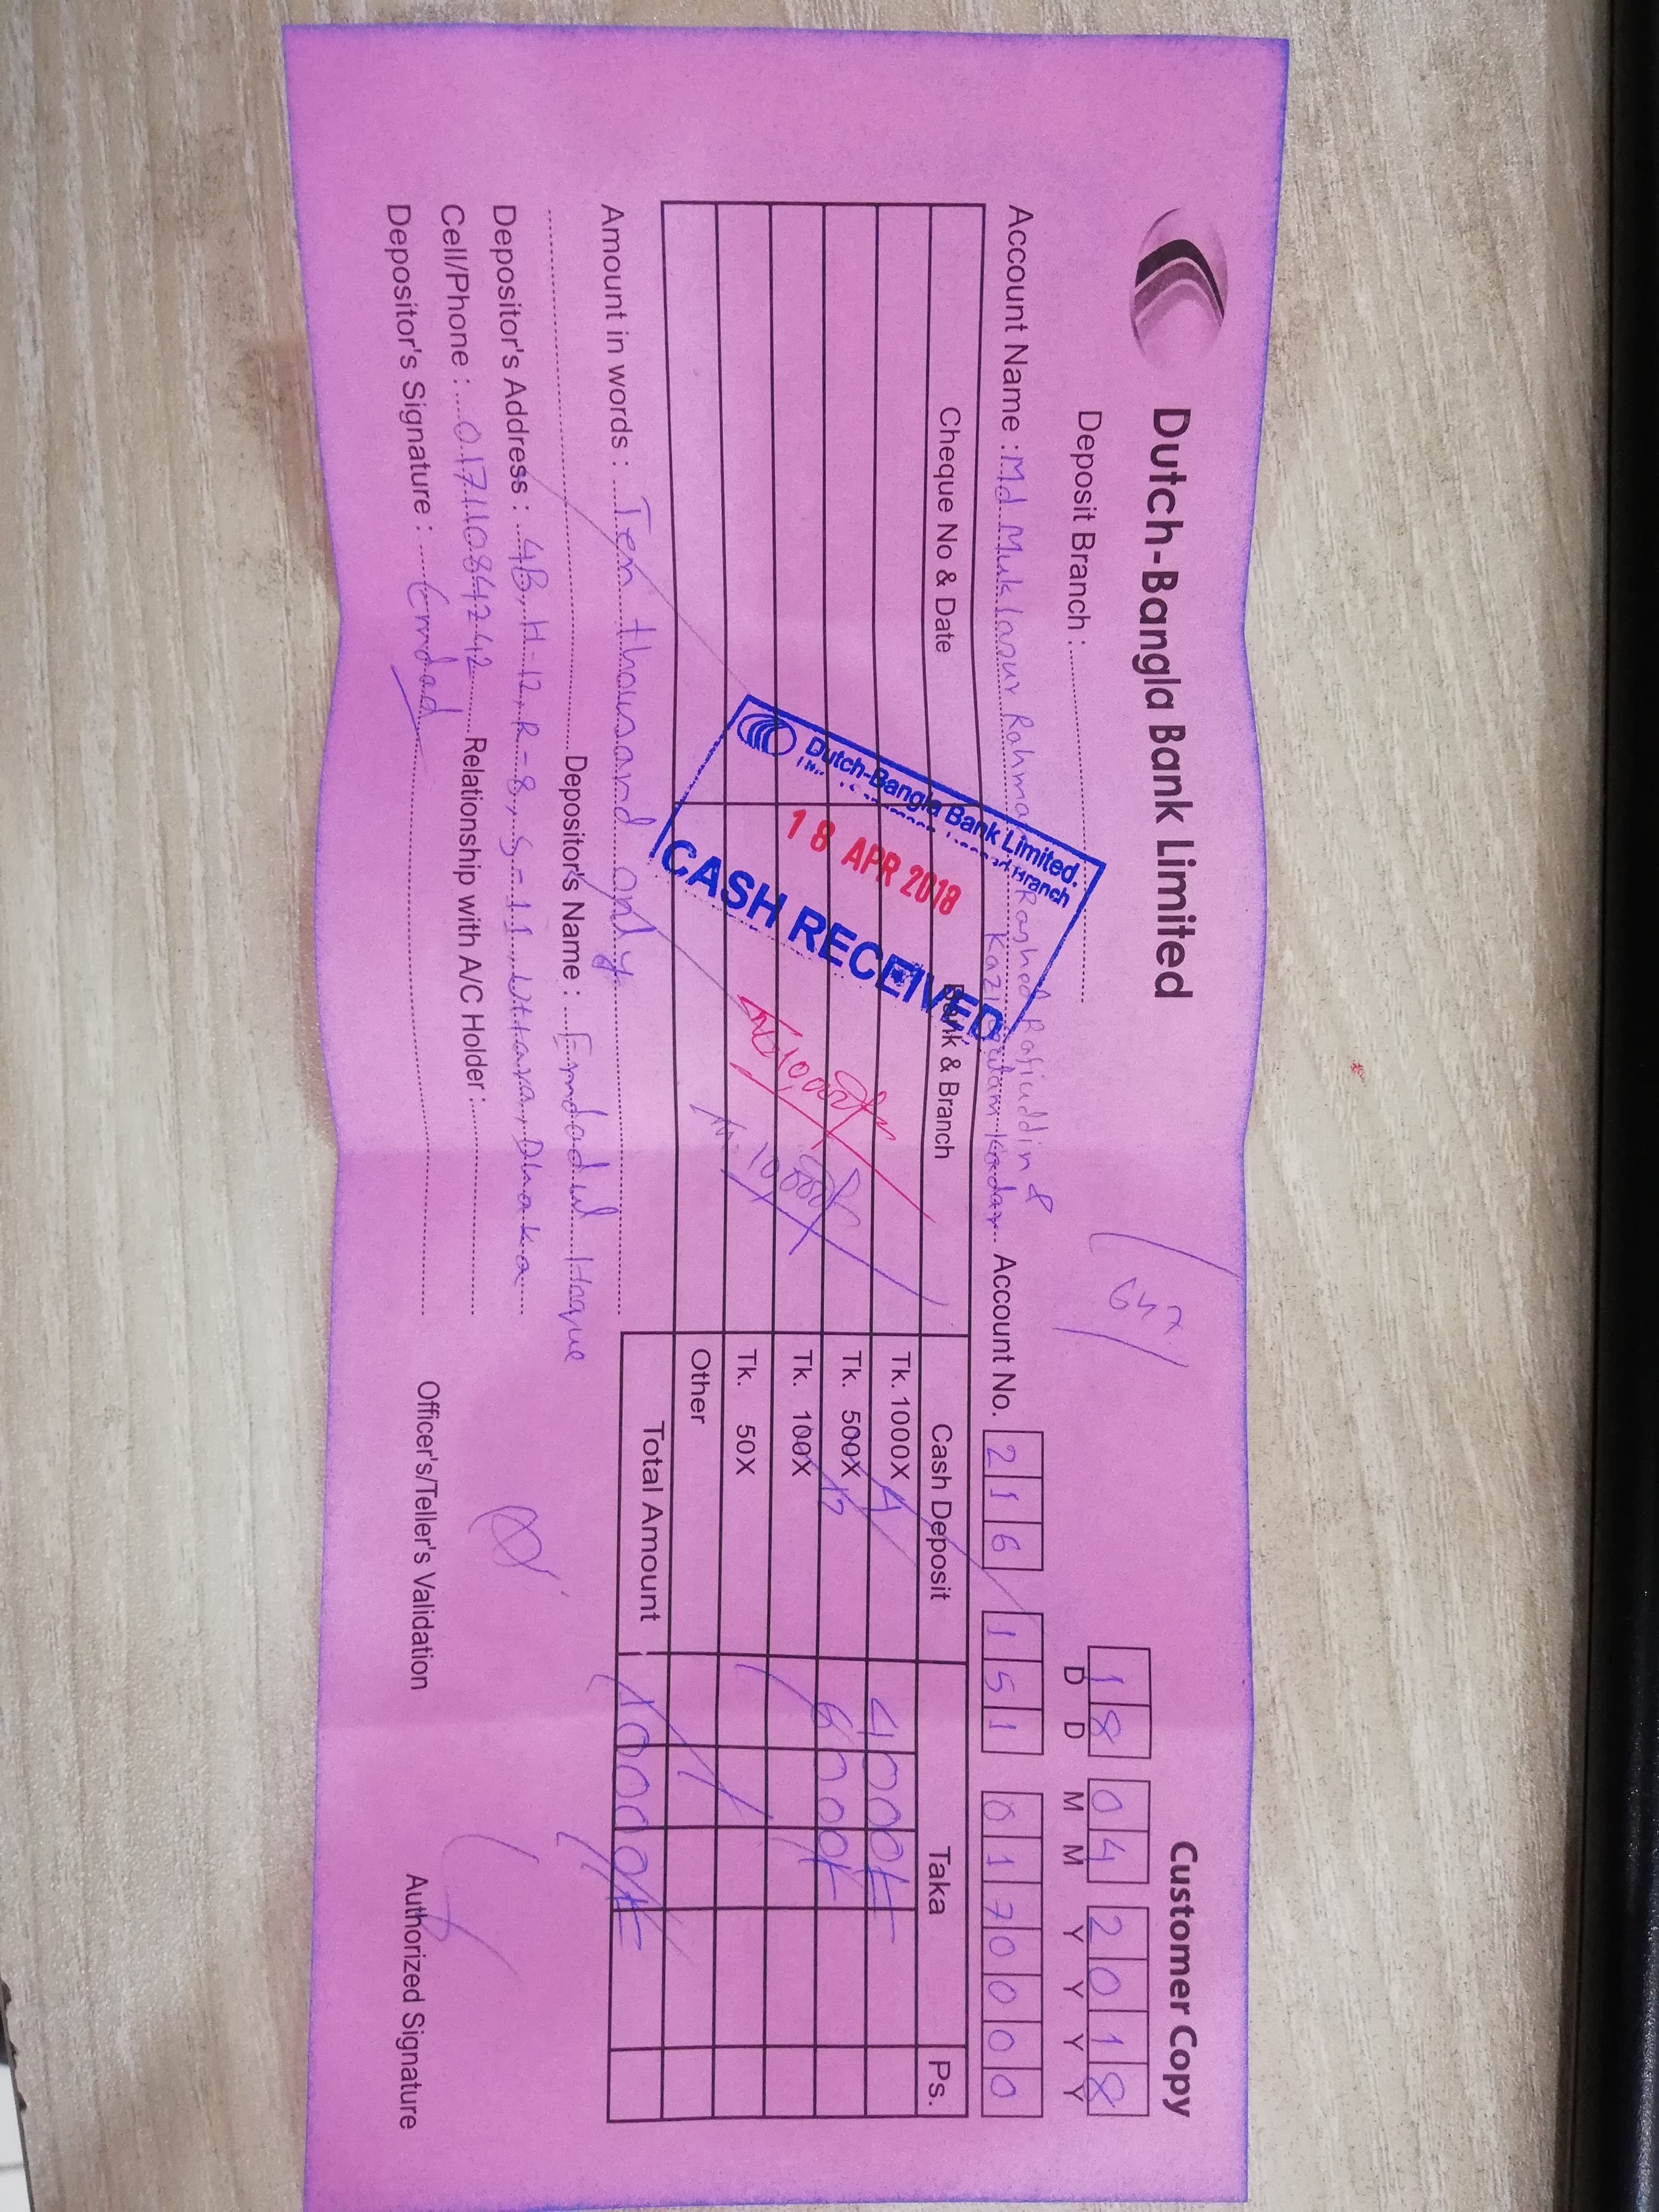 Dutch-Bangla Bank Limited
Customer Copy
Deposit Branch :
18 04 2018
D D M M Y Y Y Y
Rashed Rafiuddin &
Account Name : Md. Muklasur Rahman Kazi Kadar
Account No. 216 151 0170000
Cheque No & Date Bank & Branch Cash Deposit Taka Ps.
Tk. 1000X 4 4000
Tk. 500X 12 6000
Tk. 100X
Tk. 50X
Other
Total Amount 10000
Dutch-Bangla Bank Limited.
Branch
18 APR 2018
CASH RECEIVED
10,000
10,000
Amount in words : Ten thousand only
Depositor's Name : Emdadul Haque
Depositor's Address : 4B, H-12, R-8, S-11, Uttara, Dhaka
Cell/Phone : 01711084242 Relationship with A/C Holder :
Depositor's Signature : Emdad
Officer's/Teller's Validation
Authorized Signature